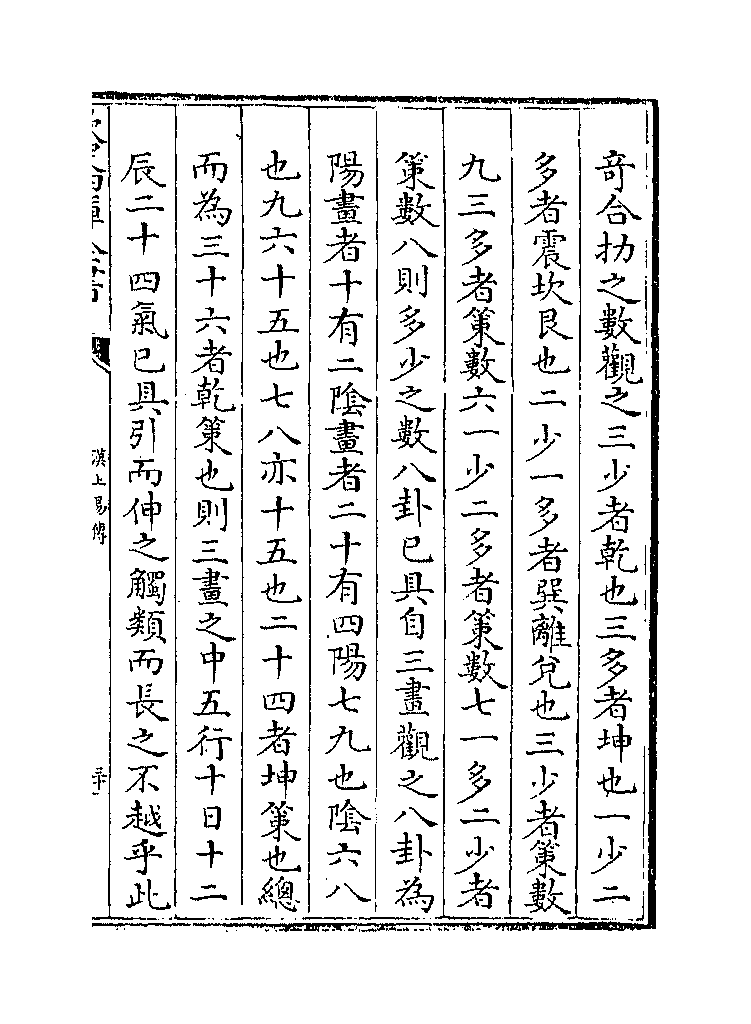 竒合扐之數觀之三少者乾也三多者坤也一少二
多者震坎艮也二少一多者巽離兌也三少者策數
九三多者策數六一少二多者策數七一多二少者
策數八則多少之數八卦已具自三畫觀之八卦為
陽畫者十有二陰畫者二十有四陽七九也陰六八
也九六十五也七八亦十五也二十四者坤策也總
而為三十六者乾策也則三畫之中五行十日十二
辰二十四氣已具引而伸之觸類而長之不越乎此
漢上易傳